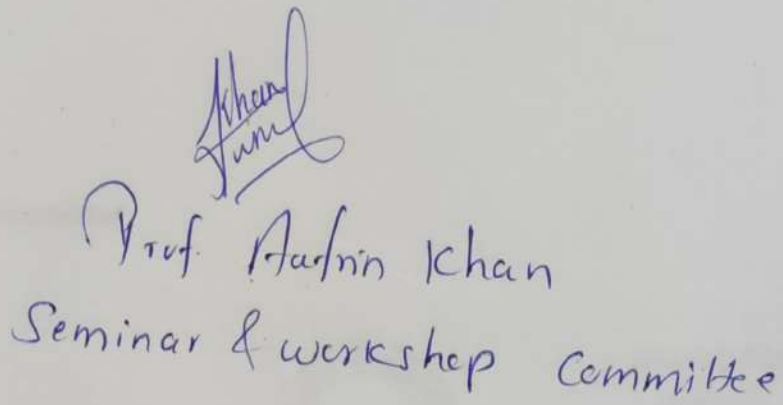 Khan
Prof. Khan
Seminar & workshop Committee